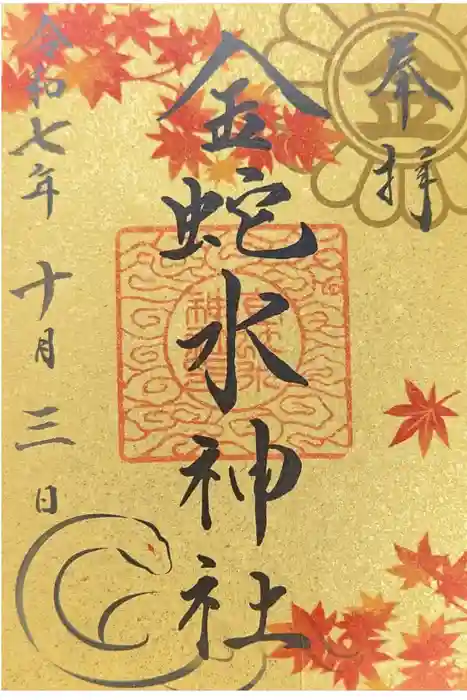 奉拝
金
金蛇水神社
令和七年十月三日